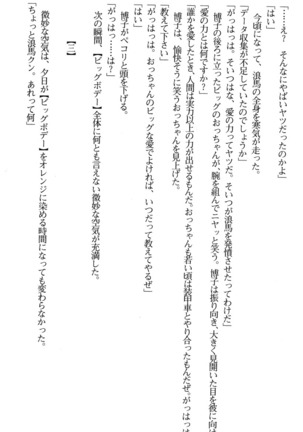 「……え？　そんなにやばいヤツだったのかよ」
「はい」
　今頃になって、浪馬の全身を寒気が走った。
「データ収集が不足していたのでしょうか」
「がっはっは。そいつはな、愛の力ってヤツだ。そいつが浪馬を発憤させたってわけだ」
「愛の力とは何ですか？」
　博子の後ろに立ったビッグのおっちゃんが、腕を組んでニヤッと笑う。博子は振り向き、大きく見開いた目を彼に向けた。
「誰かを愛したとき、人間は実力以上の力が出せるもんだ。おっちゃんも若い頃は装甲車とやり合ったもんだぜ。がっはっは」
　博子は、愉快そうに笑うおっちゃんを見上げた。
「教えて下さい」
「がっはっは。おっちゃんのビッグな愛でよければ、いつだって教えてやるぜ」
　博子がペコリと頭を下げる。
「がっはっ……はァ！」
　次の瞬間、【ビッグボデー】全体に何とも言えない微妙な空気が充満した。
【三】
　微妙な空気は、夕日が【ビッグボデー】をオレンジに染める時間になっても変わらなかった。
「ちょっと浪馬クン。あれって何」